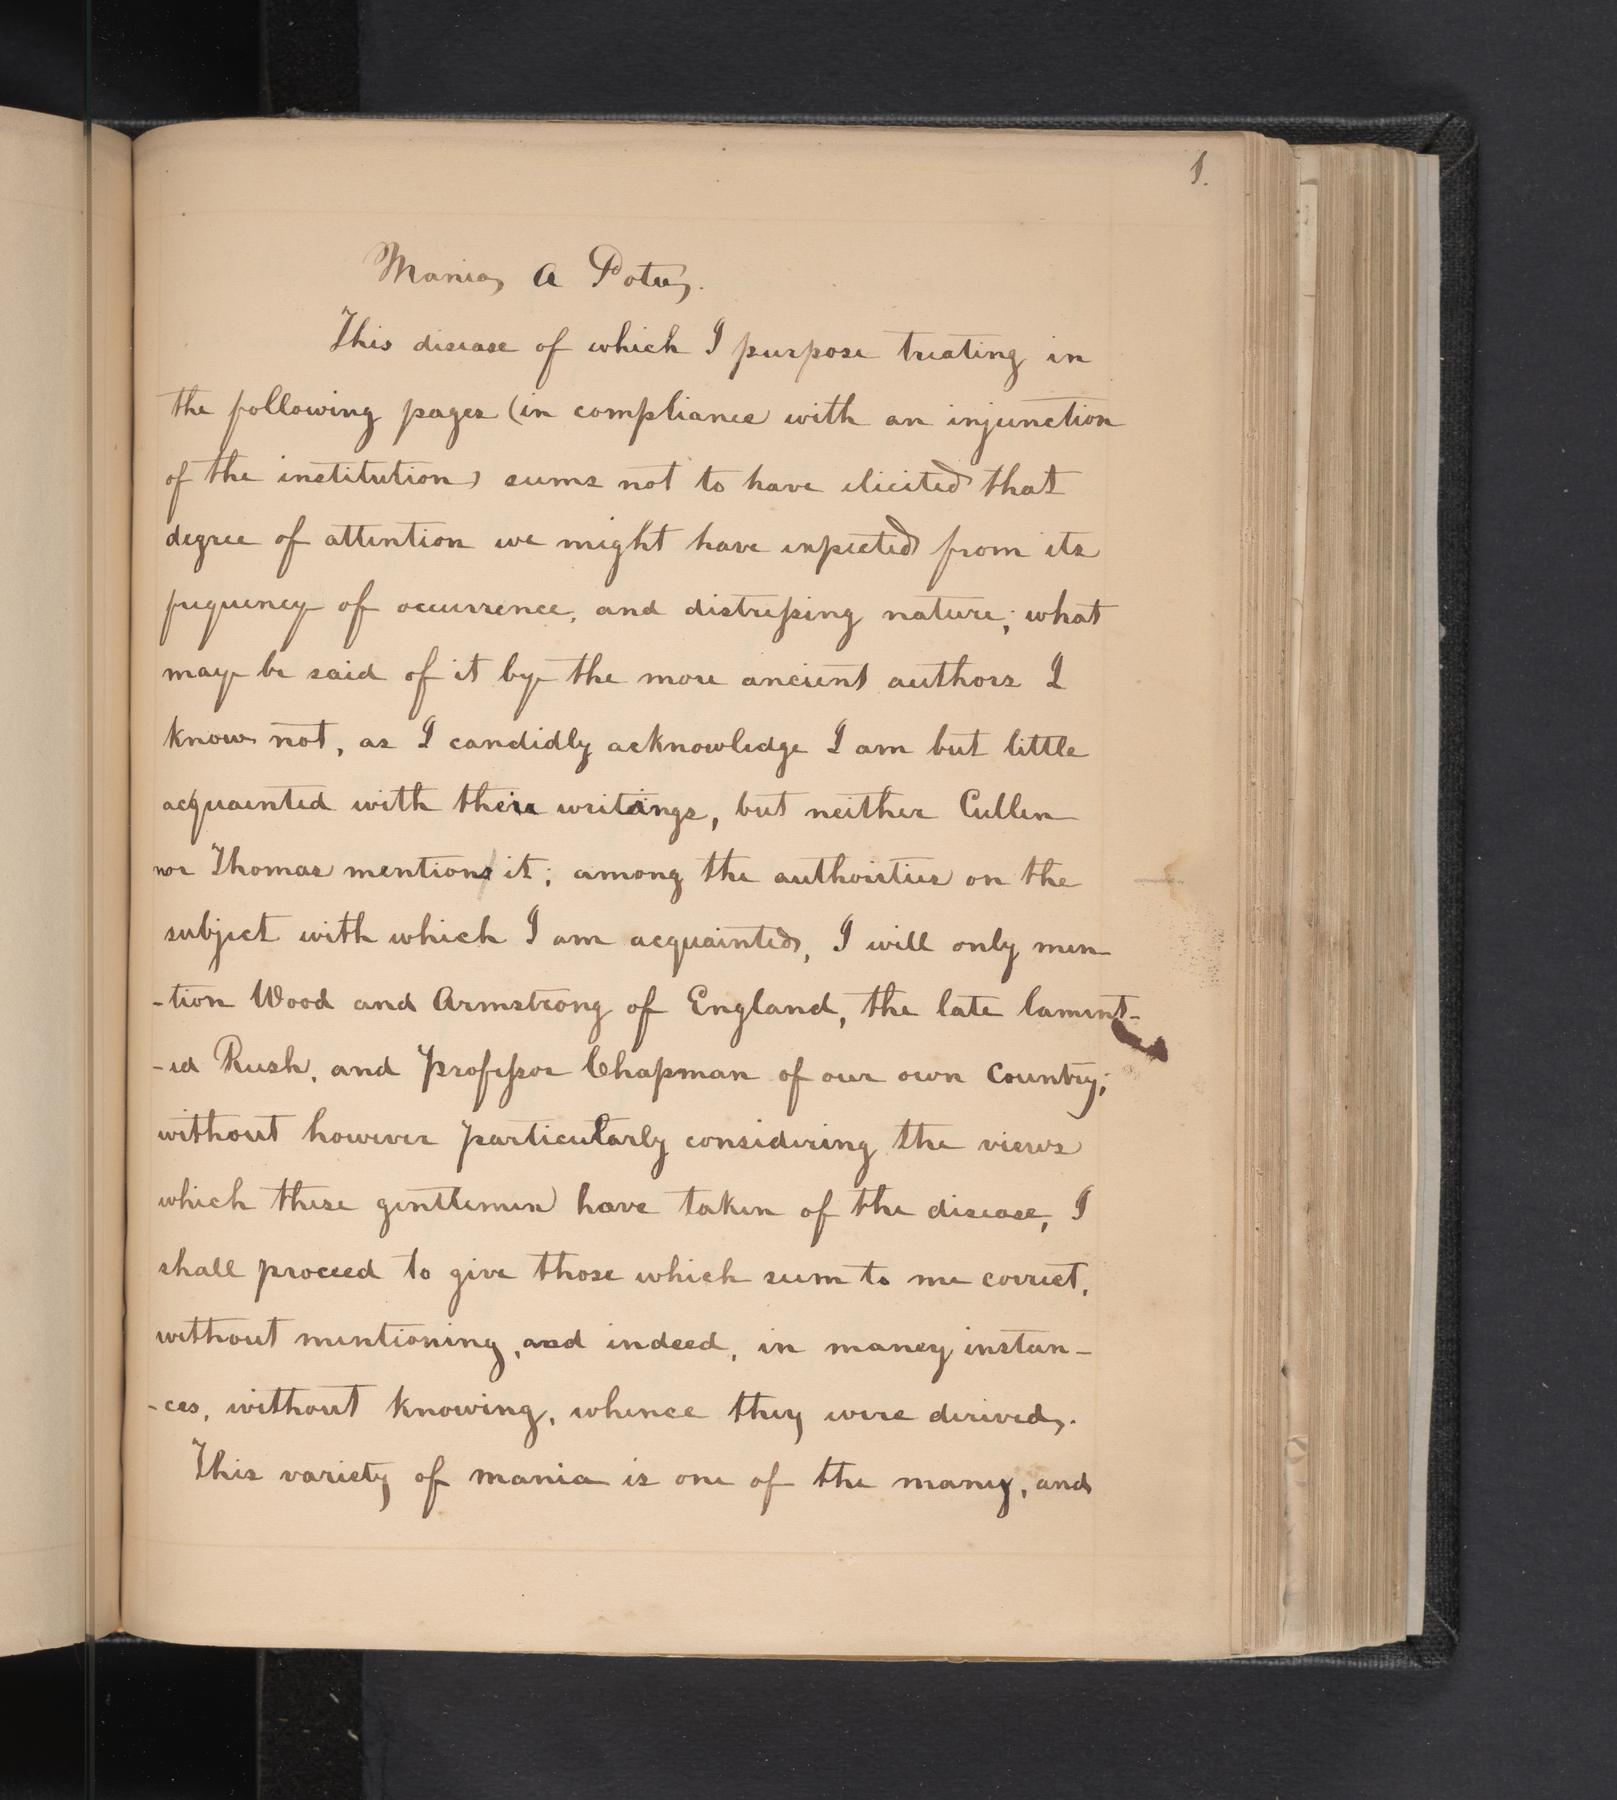 1.
Mania a Potu.
This disease of which I purpose treating in
the following pages (in compliance with an injunction
of the institution) seems not to have elicited that
degree of attention we might have expected from its
frequency of occurrence, and distressing nature; what
may be said of it by the more ancient authors I
know not, as I candidly acknowledge I am but little
acquainted with their writings, but neither Cullen
nor Thomas mention it; among the authorities on the
subject with which I am acquainted, I will only men
-tion Wood and Armstrong of England, the late lament-
-ed Rush, and Professor Chapman of our own Country;
without however particularly considering the views
which these gentlemen have taken of the disease, I
shall proceed to give those which seem to me correct,
without mentioning, and indeed, in maney instan-
-ces, without knowing, whence they were derived.
This variety of mania is one of the many, and